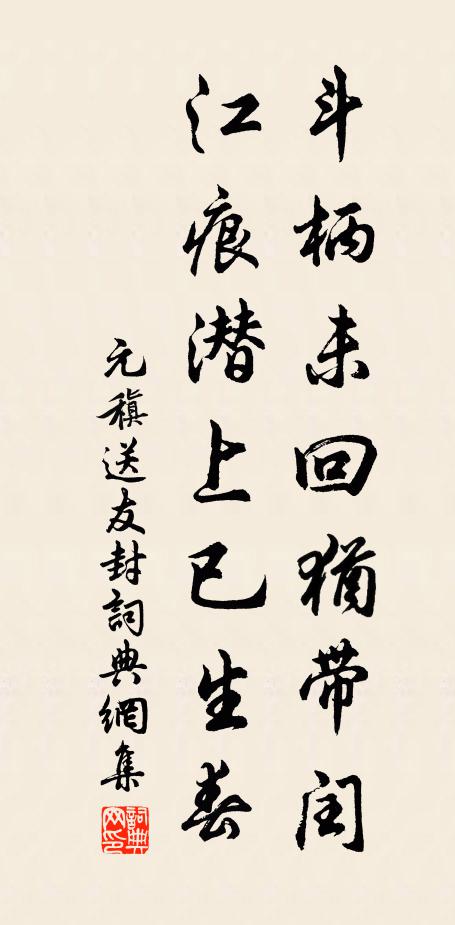 斗柄未回猶带闰
江痕潜上已生春
元稹送友封詞典網集
詞典網印